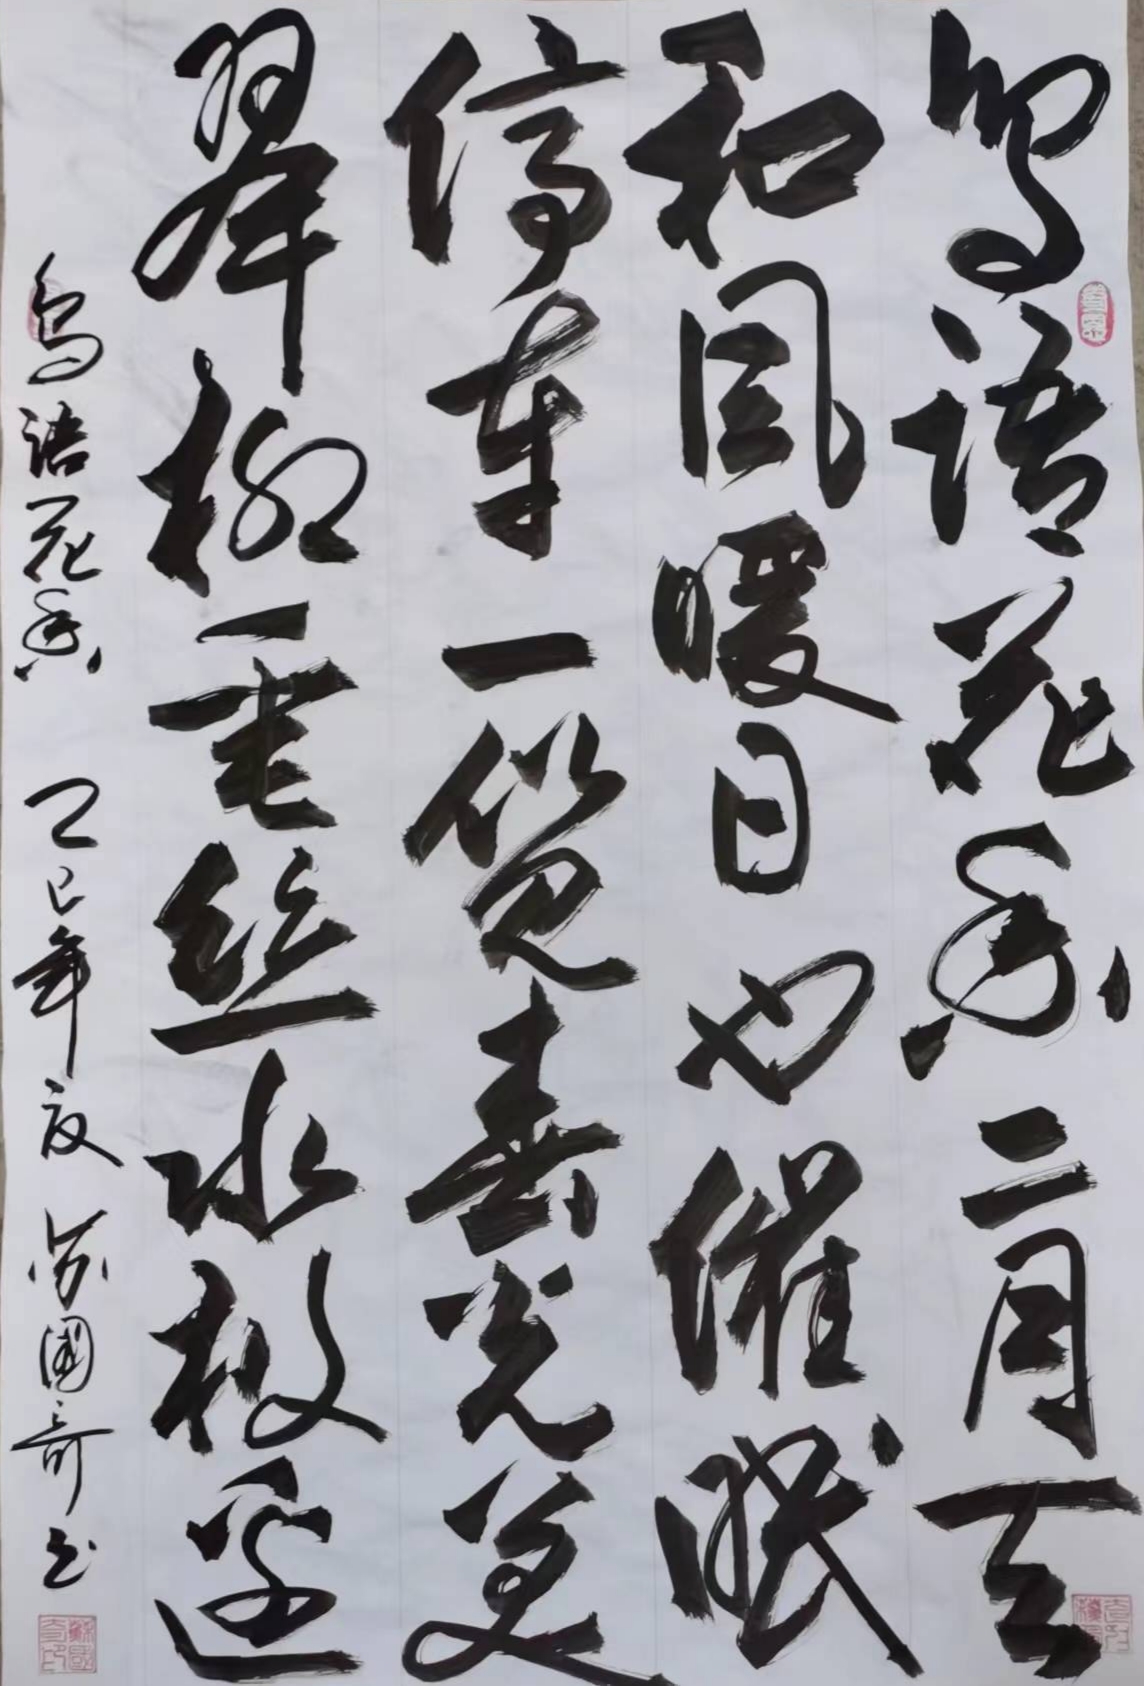 鸟语花香二月天
和风暖日也催眠
停车一览春光美
翠柳垂丝水机边
鸟语花香 乙巳年夏 苏国奇书